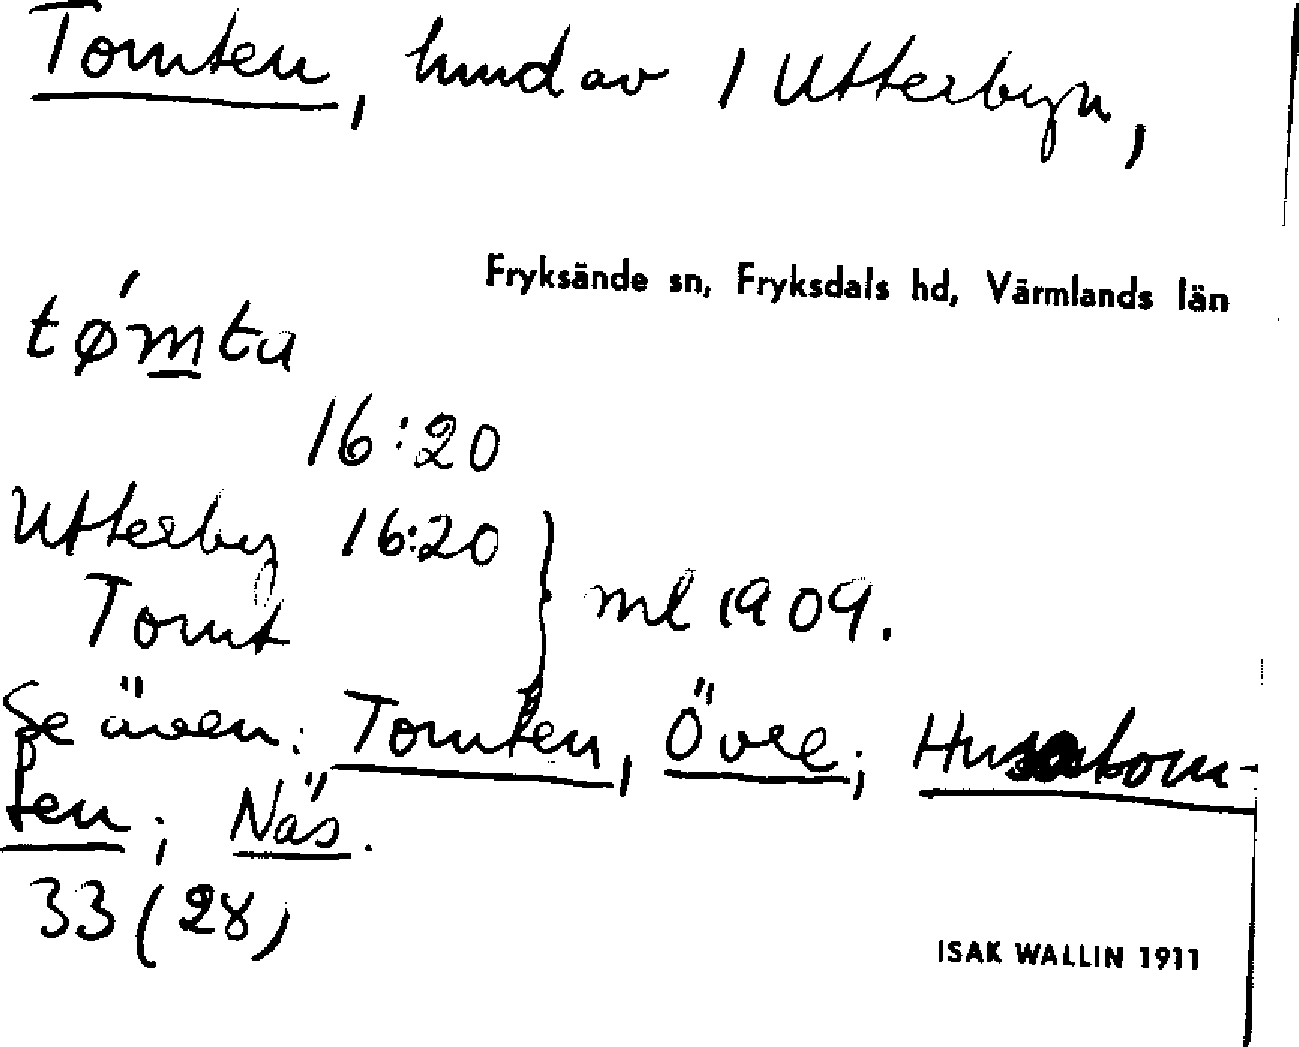 Tomten, hmd av 1 Utterbyn,
Fryksände sn, Fryksdals hd, Värmlands län
tǿmta
16:20
Utterby 16:20
Tomt
ml 1909.
Se även: Tomten, Övre; Husatom-
ten; Näs.
33 (28)
ISAK WALLIN 1911